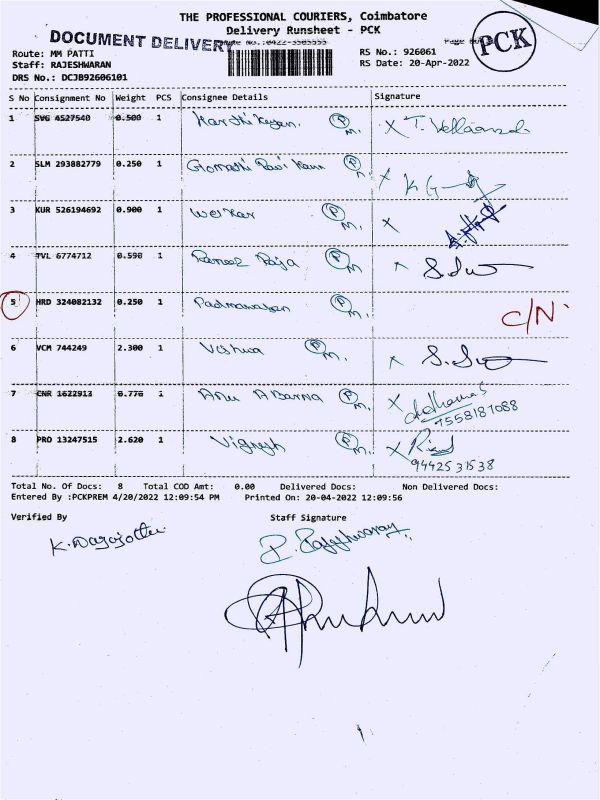 THE PROFESSIONAL COURIERS, Coimbatore
Delivery Runsheet - PCK
DOCUMENT DELIVERY
PCK
Route: MM PATTI
RS No.: 926061
Staff: RAJESHWARAN
RS Date: 20-Apr-2022
DRS No.: DCJB92606101
S No Consignment No Weight PCS Consignee Details Signature
1 SVG 4527540 0.500 1 Karthikeyan. P M.
2 SLM 293882779 0.250 1 P M.
3 KUR 526194692 0.900 1 P M.
4 TVL 6774712 0.590 1 Raja P M
5 HRD 324082132 0.250 1 P M. C/N
6 VCM 744249 2.300 1 Vishwa P M.
7 CNR 1622913 0.776 1 P M.
7558187088
8 PRO 13247515 2.620 1 Vignesh P M.
9442531538
Total No. Of Docs: 8 Total COD Amt: 0.00 Delivered Docs: Non Delivered Docs:
Entered By :PCKPREM 4/20/2022 12:09:54 PM Printed On: 20-04-2022 12:09:56
Verified By Staff Signature